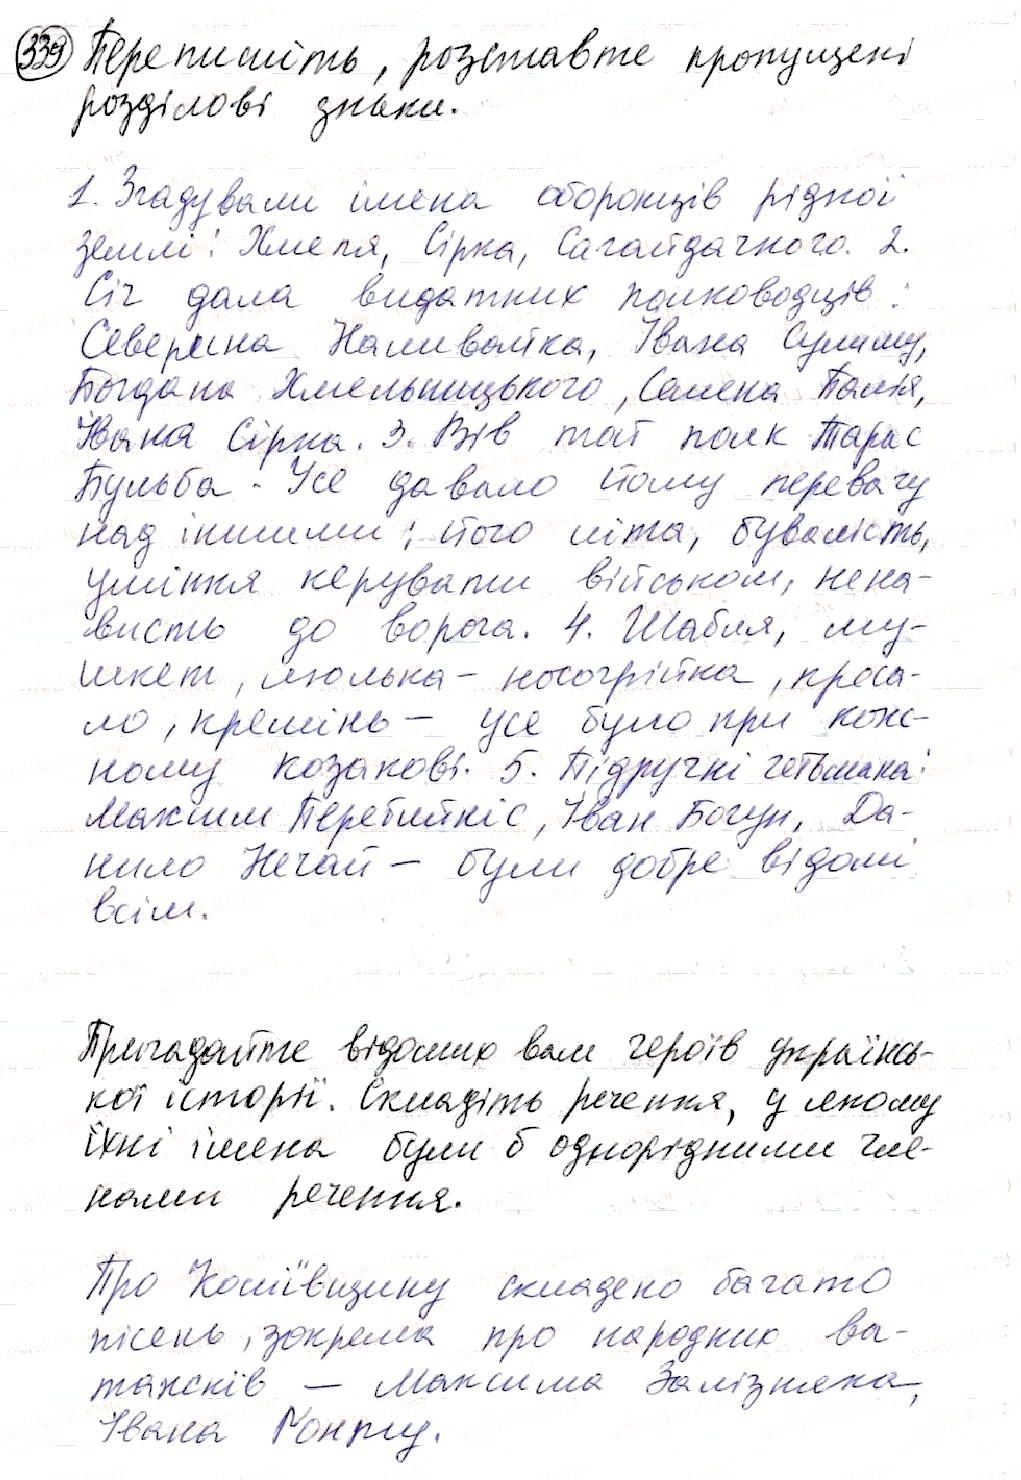 339 Перепишіть, розставте пропущені
розділові знаки.
1. Згадували імена оборонців рідної
землі: Хмеля, Сірка, Сагайдачного. 2.
Січ дала видатних полководців:
Северина Наливайка, Івана Сулиму,
Богдана Хмельницького, Семена Палія,
Івана Сірка. 3. Вів той полк Тарас
Бульба. Усе давало йому перевагу
над іншими: його літа, бувалість,
уміння керувати військом, нена-
висть до ворога. 4. Шабля, му-
шкет, люлька-носогрійка, креса-
ло, кремінь – усе було при кож-
ному козакові. 5. Підручні гетьмана:
Максим Перебийніс, Іван Богун, Да-
нило Нечай – були добре відомі
всім.
Пригадайте відомих вам героїв україн​сь-
кої історії. Складіть речення, у якому
їхні імена були б однорідними чле-
нами речення.
Про Коліївщину складено багато
пісень, зокрема про народних ва-
тажків – Максима Залізняка,
Івана Ґонту.